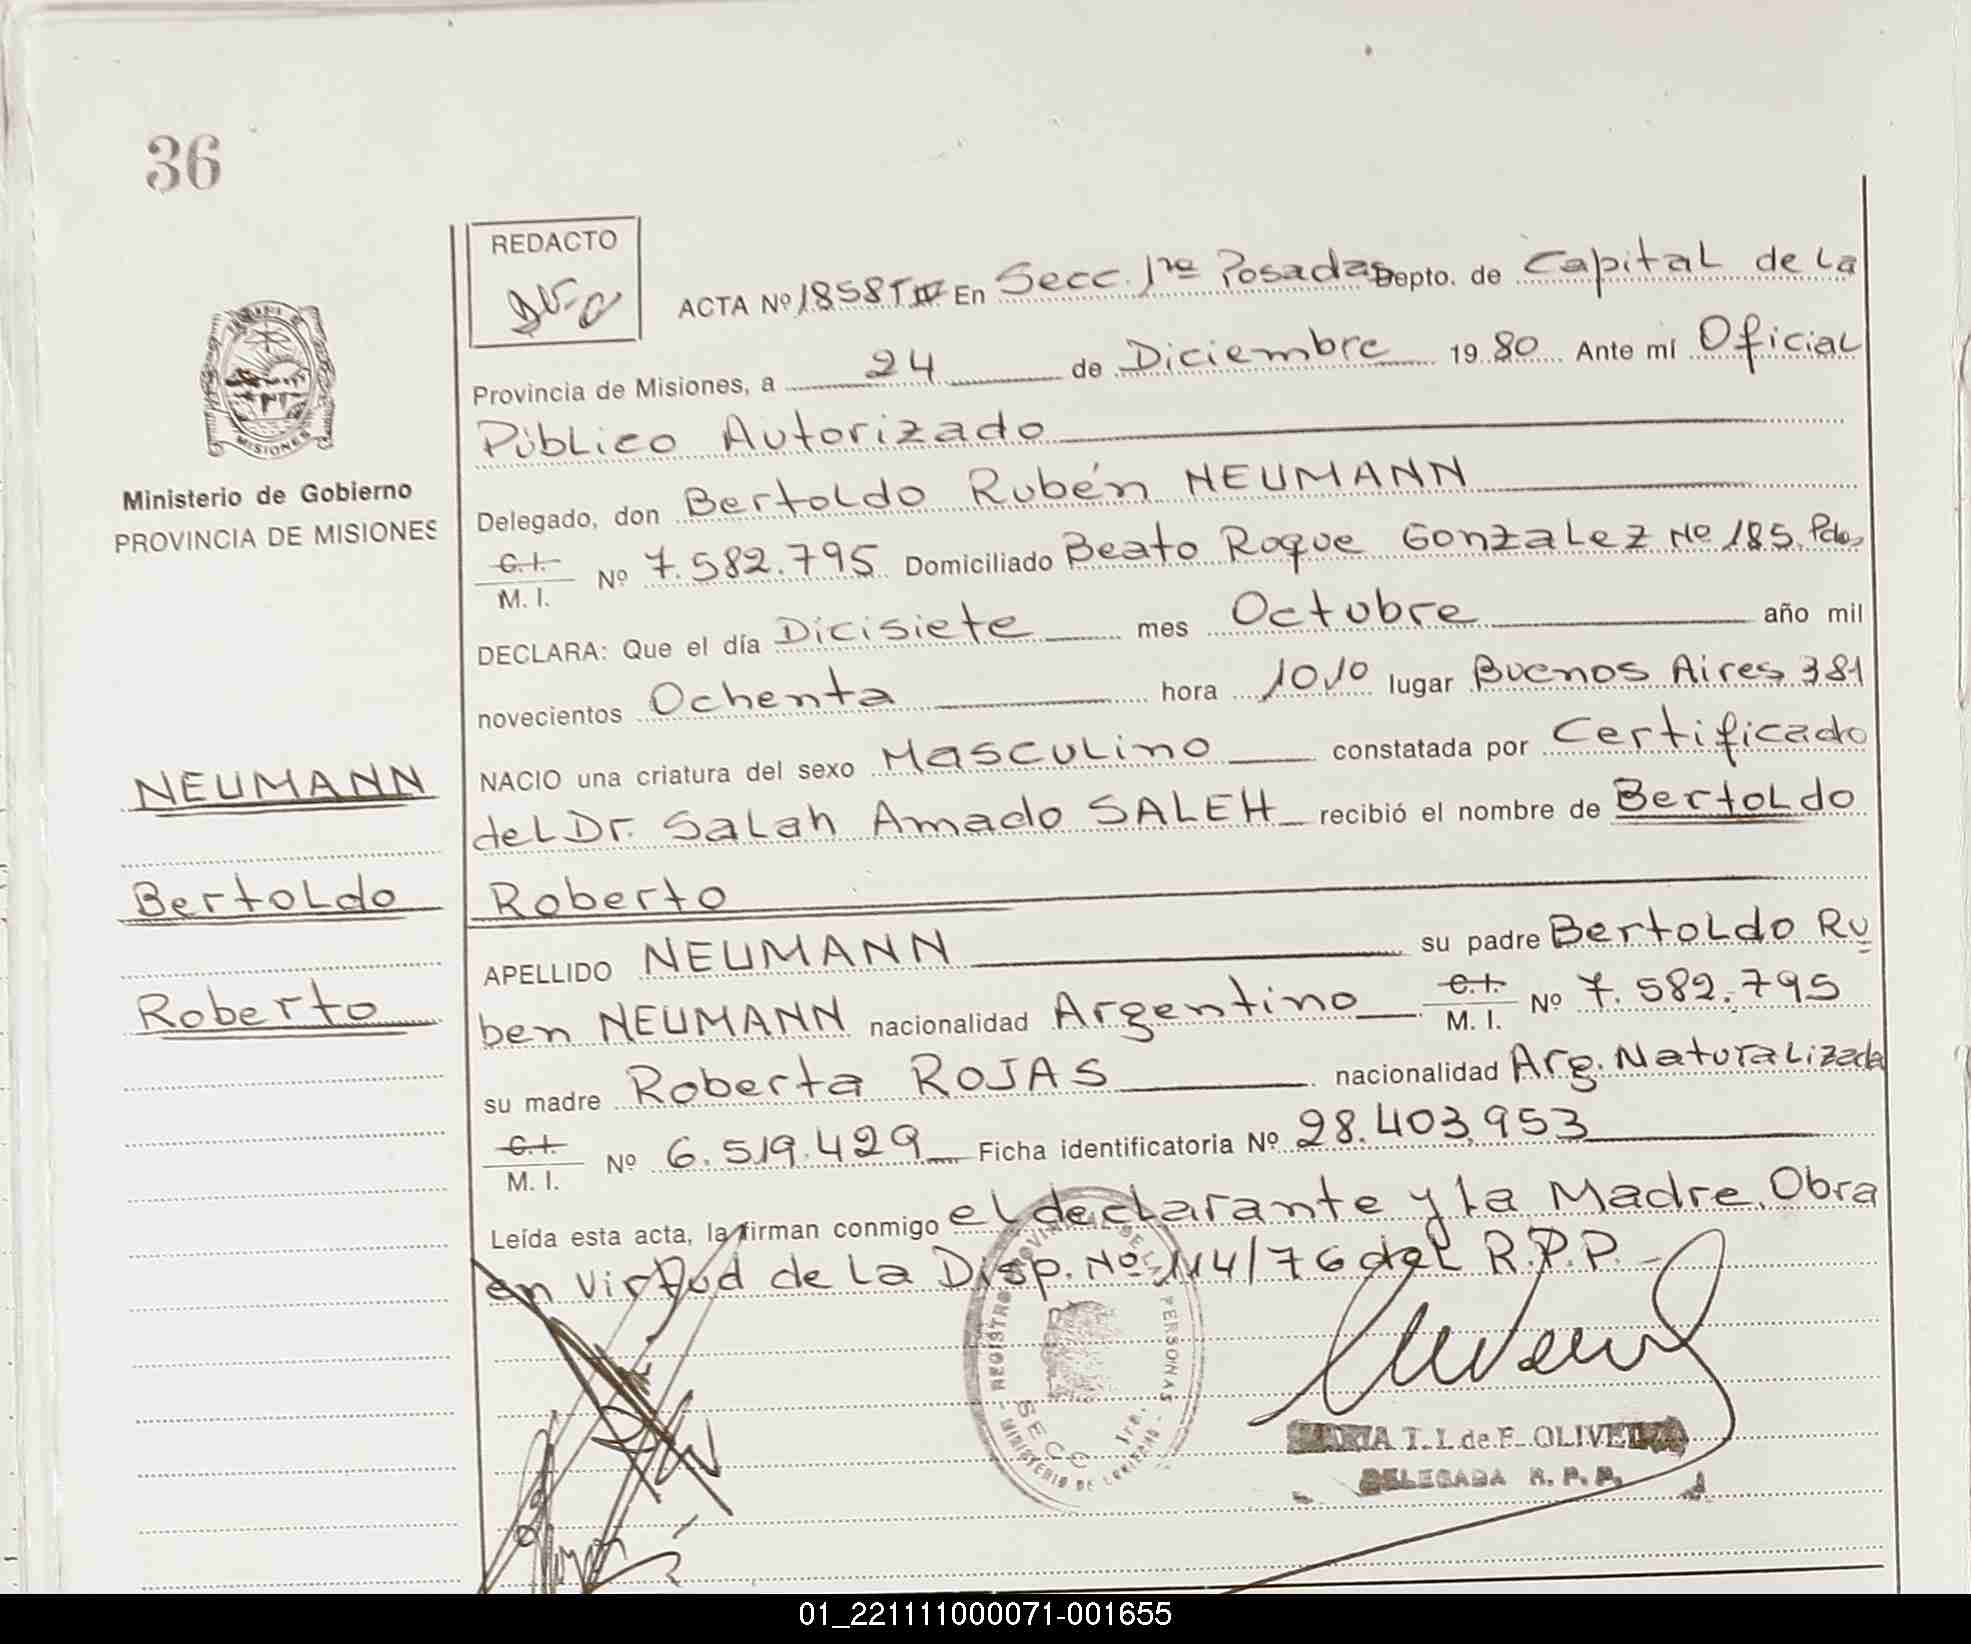 36
REDACTO
ACTA Nº 1858 T IV En Secc. 1ra Posadas Depto. de Capital de la
Provincia de Misiones, a 24 de Diciembre 19 80 Ante mí Oficial
Público Autorizado
Delegado, don Bertoldo Rubén NEUMANN
C.I.
M. I. Nº 7.582.795 Domiciliado Beato Roque Gonzalez Nº 185. Pdas
DECLARA: Que el día Dicisiete mes Octubre año mil
novecientos Ochenta hora 10,10 lugar Buenos Aires 381
NACIO una criatura del sexo Masculino constatada por Certificado
del Dr. Salah Amado SALEH recibió el nombre de Bertoldo
Roberto
APELLIDO NEUMANN su padre Bertoldo Ru
ben NEUMANN nacionalidad Argentino C.I.
M. I. Nº 7.582.795
su madre Roberta ROJAS nacionalidad Arg. Naturalizada
C.I.
M. I. Nº 6.519.429 Ficha identificatoria Nº 28.403.953
Leída esta acta, la firman conmigo el declarante y la Madre. Obra
en virtud de la Disp. Nº 114/76 del R.P.P.-
MISIONES
Ministerio de Gobierno
PROVINCIA DE MISIONES
NEUMANN
Bertoldo
Roberto
REGISTRO PROVINCIAL DE LAS PERSONAS
SECC. 1ra.
MINISTERIO DE GOBIERNO
MARIA T. I. de F. OLIVEIRA
DELEGADA R. P. P.
01_221111000071-001655